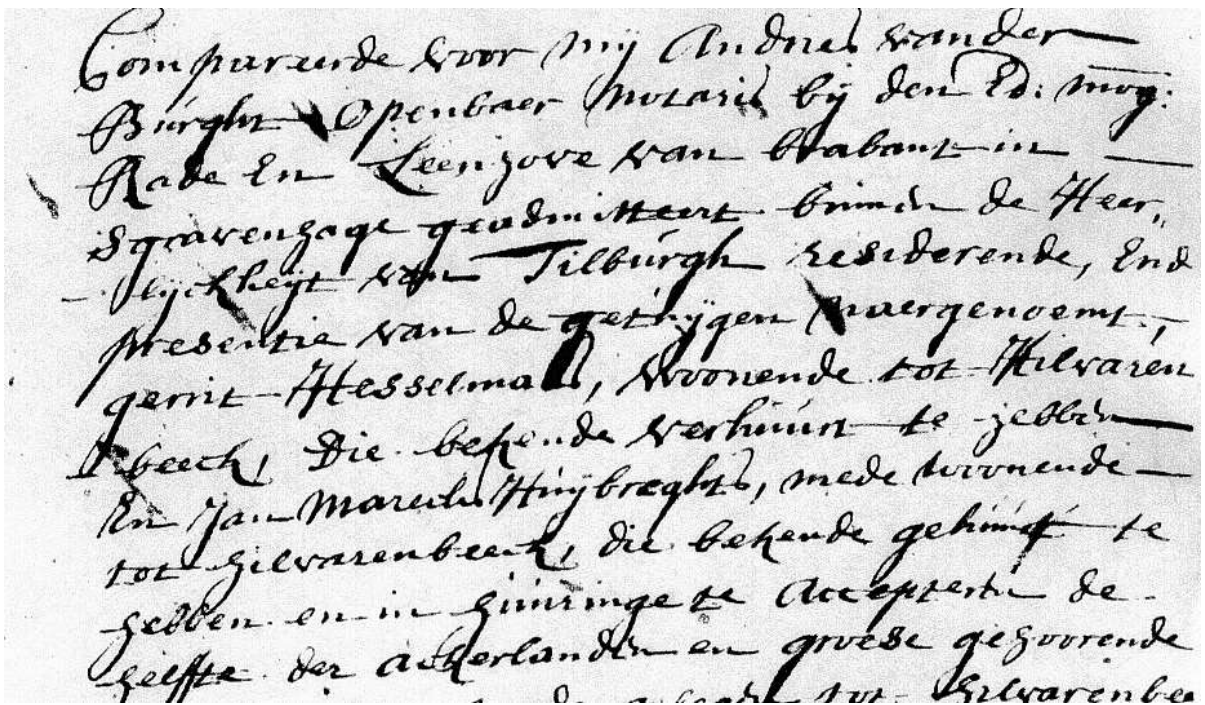 Compareerde voor mij Andries vander
Burght Openbaer Notaris bij den Ed: mog:
Rade En Leenhove van brabant in
Sgravenhage geadmitteert binnen de Heer„
lyckheijt van Tilburgh residerende, End
presentie van de getuijgen naergenoemt,
gerrit Hesselmans, Woonende tot Hilvaren
beeck, Die bekende verhuurt te hebben
En Jan Marcelis Huijbreghts, mede woonende
tot hilvarenbeeck, die bekende gehuurt te
hebben en in huiringe te Accepteren de
helffte der ackerlanden en groese gehoorende
tot hilvarenbee